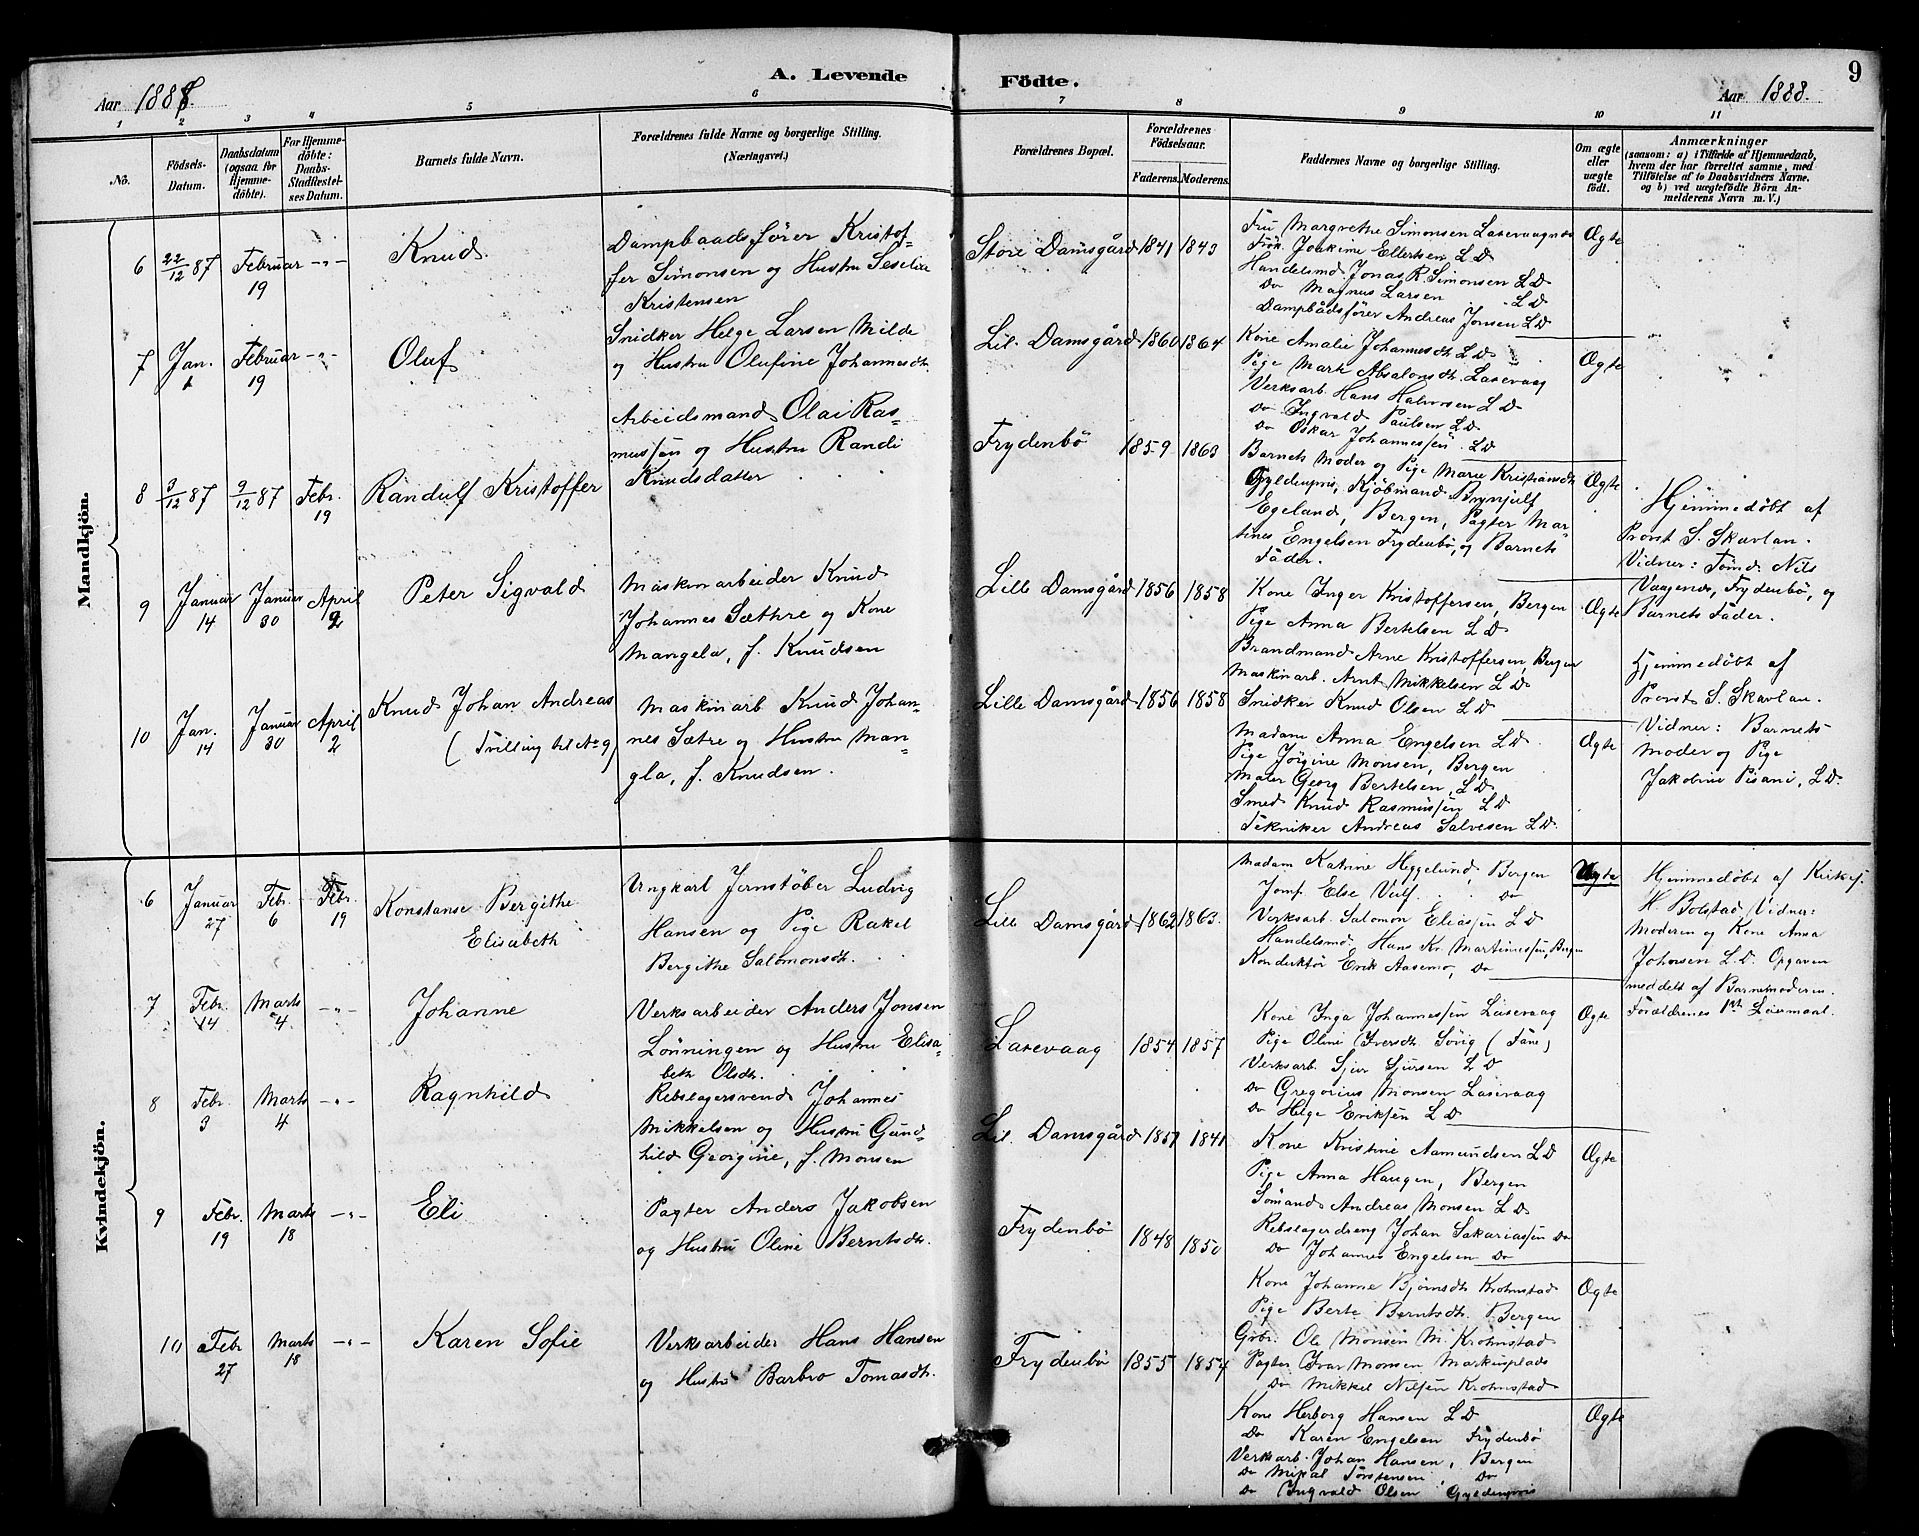 Aar 1888.
A. Levende
Födte.
Aar 1888.
9
1 2 3 4 5 6 7 8 9 10 11
No.
Födsels-
Datum.
Daabsdatum
(ogsaa for
Hjemme-
döbte).
For Hjemme-
döbte:
Daabs-
Stadfæstel-
ses Datum.
Barnets fulde Navn.
Forældrenes fulde Navne og borgerlige Stilling.
(Næringsvei.)
Forældrenes Bopæl.
Forældrenes
Födselsaar.
Faderens. Moderens.
Faddernes Navne og borgerlige Stilling.
Om ægte
eller
uægte
födt.
Anmærkninger
(saasom: a) i Tilfælde af Hjemmedaab,
hvem der har forrettet samme, med
Tilföielse af to Daabsvidners Navne.
og b) ved uægtefödte Börn An-
melderens Navn m. V.)
Mandkjön.
6
22/12 87
Februar
19
-„-
Knud.
Dampbaadsfører Kristof-
fer Simonsen og Hustru
Kristensen
Store Damsgård
1841
1843
Fru Margrethe Simonsen
Frøk. Joakine Ellertsen LD
Handelsmd. Jonas R. Simonsen LD
Do Magnus Larsen LD
Dampbådsfører Andreas Jonsen LD
Ægte
7
Jan.
1
Februar
19
-„-
Oluf
Snidker Helge Larsen Milde
og Hustru Olufine Johannesdt.
Lil. Damsgård
1860
1864
Kone Amalie Johannesdt. LD
Pige Marte Absalonsdt. Laxevaag
Verksarb. Hans Halvorsen LD
Do Ingvald Paulsen LD
Do Oskar Johannessen LD
Ægte
8
3/12 87
9/12 87
Febr.
19
Randulf Kristoffer
Arbeidsmand Olai Ras-
mussen og Hustru Randi
Knudsdatter
Frydenbö
1859
1863
Barnets Moder og Pige Marie Kristiansdt.
Gyldenpris, Kjöbmand Brynjulf
Egeland, Bergen, Pagter Mar-
tines Engelsen Frydenbø, og Barnets
Fader.
Ægte
Hjemmedøbt af
Provst S. Skavlan.
Vidner: Tømd. Nils
Vaagenes, Frydenbø, og
Barnets Fader.
9
Januar
14
Januar
30
April
2
Peter Sigvald
Maskinarbeider Knud
Johannes Sæthre og Kone
Mangela, f. Knudsen
Lille Damsgård
1856
1858
Kone Inger Kristoffersen, Bergen
Pige Anna Bertelsen LD
Brandmand Arne Kristoffersen, Bergen
Maskinarb. Arnt Mikkelsen LD
Snidker Knud Olsen LD
Ægte
Hjemmedøbt af
Provst S. Skavlan.
Vidner: Barnets
Moder og Pige
Jakobine Pisani, LD.
10
Jan.
14
Januar
30
April
2
Knud Johan Andreas
(Tvilling til No 9)
Maskinarb Knud Johan-
nes Sætre og Hustru Man-
gla, f. Knudsen.
Lille Damsgård
1856
1858
Madame Anna Engelsen LD
Pige Jørgine Monsen, Bergen
Maler Georg Bertelsen, LD
Smed Knud Rasmussen LD
Tekniker Andreas Salvesen LD.
Ægte
Kvindekjön.
6
Januar
27
Febr.
6
Febr.
19
Konstanse Bergithe
Elisabeth
Ungkarl Jernstøber Ludvig
Hansen og Pige Rakel
Bergithe Salomonsdt.
Lille Damsgård
1862
1863.
Madam Katrine Heggelund, Bergen
Jomf. Else Do
Verksarb. Salomon Eliassen LD
Handelsmd. Hans Kr. Martinussen, Bergen
Konduktør Erik Aasemo, Do
Uægte
Hjemmedøbt af Kirkes.
H. Bolstad. Vidner:
Moderen og Kone Anna
Johnsen LD. Opgaven
meddelt af Barnemoderen.
Forældrenes 1ste Leiermaal.
7
Febr.
14
Marts
4.
-„-
Johanne
Verksarbeider Anders Jonsen
Lönningen og Hustru Elisa-
beth Olsdt.
Laxevaag
1854
1857
Kone Inga Johannessen Laxevaag
Pige Oline Iversdt. Sörig (Fane)
Verksarb. Sjur Sjursen LD
Do Gregorius Monsen Laxevaag
Do Helge Eriksen LD
Ægte
8
Febr.
3
Marts
4
-„-
Ragnhild
Rebslagersvend Johannes
Mikkelsen og Hustru Gund-
hild Georgine, f. Monsen
Lil. Damsgård
1851
1841
Kone Kristine Aamundsen LD
Pige Anna Haugen, Bergen
Sömand Andreas Monsen LD
Rebslagerdreng Johan Sakariassen Do
Do Johannes Engelsen Do
Ægte
9
Febr.
19
Marts
18
-„-
Eli
Pagter Anders Jakobsen
og Hustru Oline Berntsdt.
Frydenbø
1848
1850
Kone Johanne Bjørnsdt. Krohnstad
Pige Berte Berntsdt. Bergen
Gbr. Ole Monsen M. Krohnstad
Pagter Ivar Monsen Markusplads
Do Mikkel Nilsen Krohnstad
Ægte
10
Febr
27
Marts
18
-„-
Karen Sofie
Verksarbeider Hans Hansen
og Hustru Barbro Tomasdt.
Frydenbö
1855
1854
Kone Herborg Hansen LD
Do Karen Engelsen Frydenbö
Verksarb. Johan Hansen, Bergen
Do Mikal Torstensen, Do
Do Ingvald Olsen Gyldenpris
Ægte